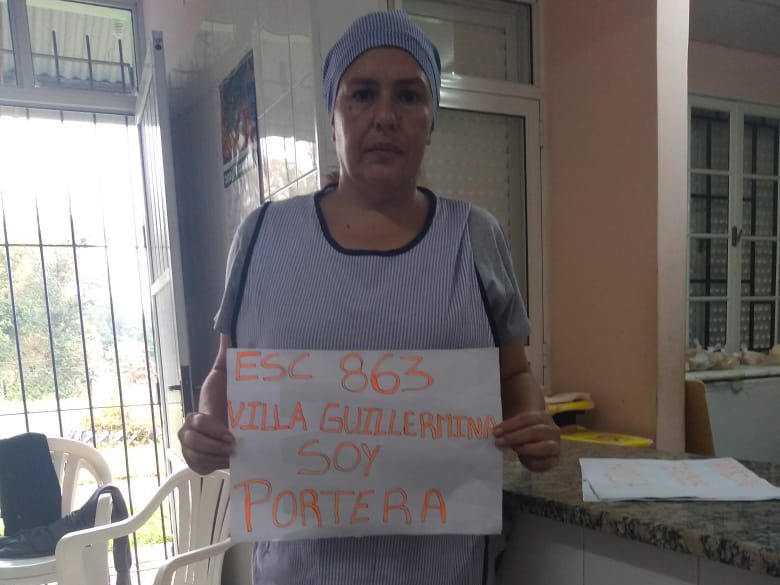 ESC 863
VILLA GUILLERMINA
SOY
PORTERA